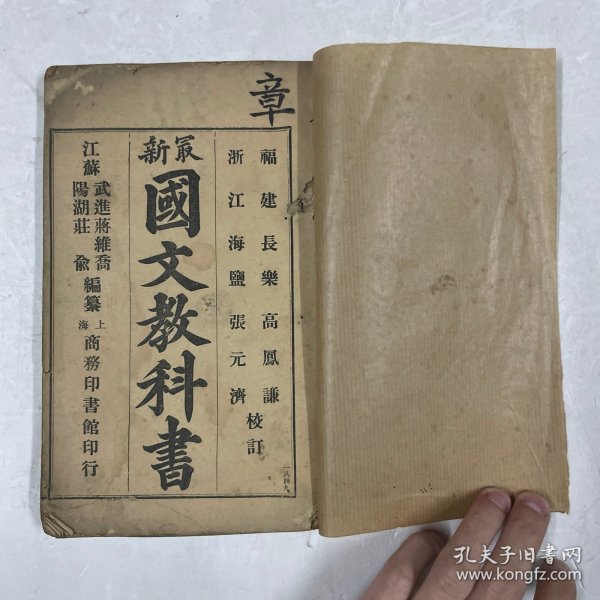 章
福建長樂高鳳謙
浙江海鹽張元濟
校訂
最新
國文教科書
江蘇
武進蔣維喬
陽湖莊俞
編纂
上海
商務印書館印行
一八四九
孔夫子旧书网
www.kongfz.com